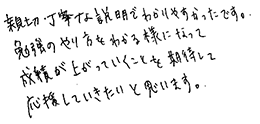 親切・丁寧な説明でわかりやすかったです。
勉強のやり方をわかる様になって
成績が上がっていくことを期待して
応援していきたいと思います。